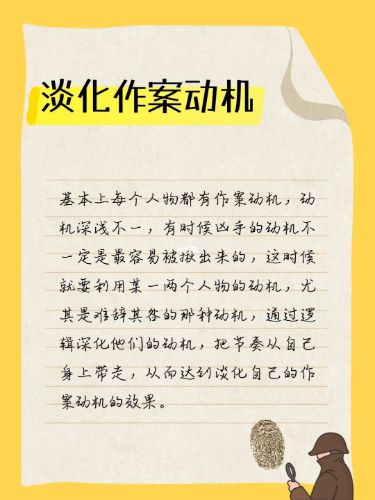 淡化作案动机
基本上每个人物都有作案动机，动
机深浅不一，有时候凶手的动机不
一定是最容易被揪出来的，这时候
就要利用某一两个人物的动机，尤
其是难辞其咎的那种动机，通过逻
辑深化他们的动机，把节奏从自己
身上带走，从而达到淡化自己的作
案动机的效果。